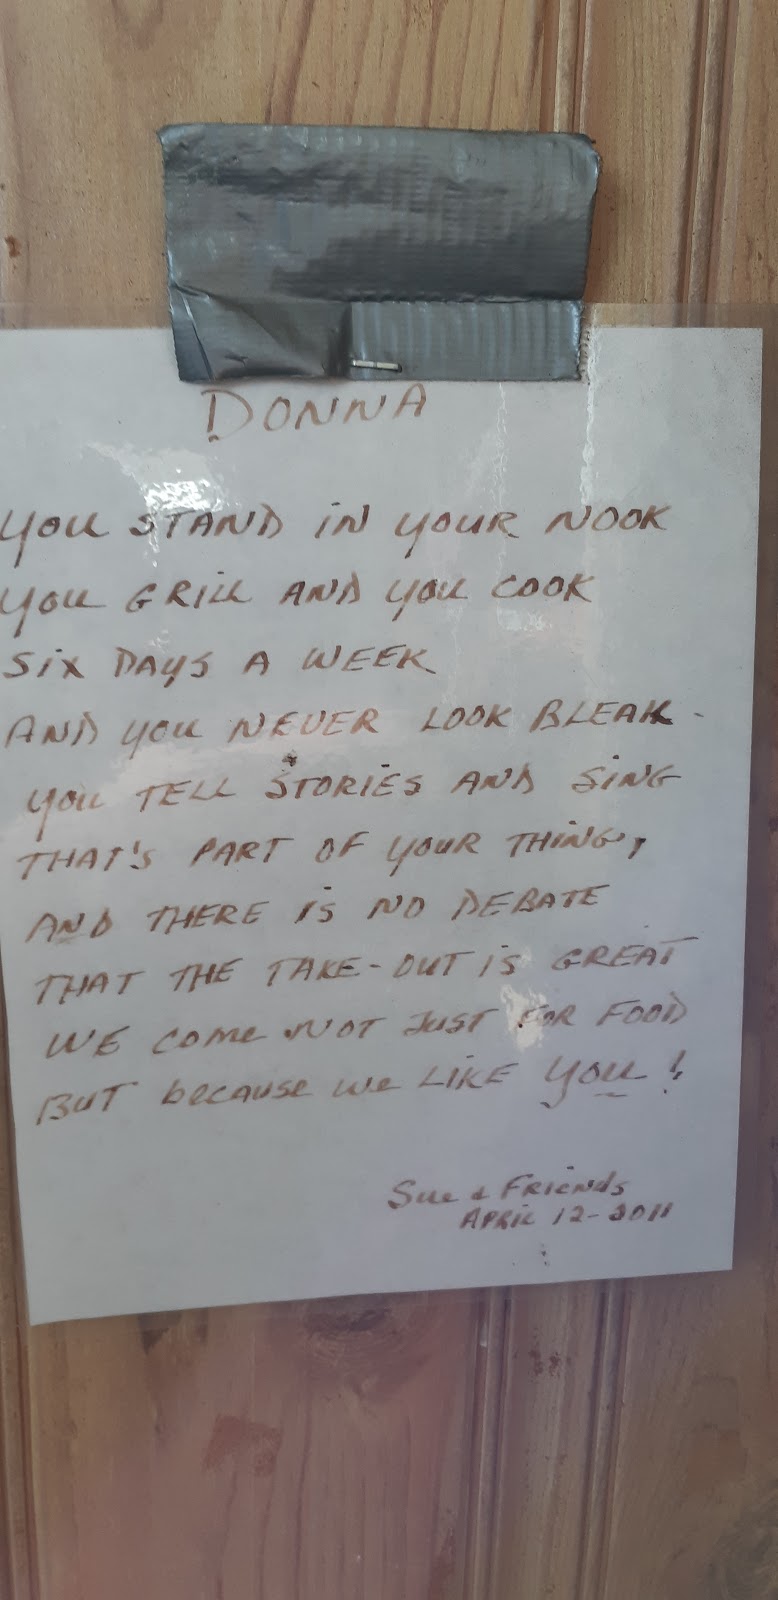 DONNA
YOU STAND IN YOUR NOOK
YOU GRILL AND YOU COOK
SIX DAYS A WEEK
AND YOU NEVER LOOK BLEAK -
YOU TELL STORIES AND SING
THAT'S PART OF YOUR THING,
AND THERE IS NO DEBATE
THAT THE TAKE-OUT IS GREAT
WE COME NOT JUST FOR FOOD
BUT because we LIKE YOU!
Sue & FRIENds
APRIL 12-2011